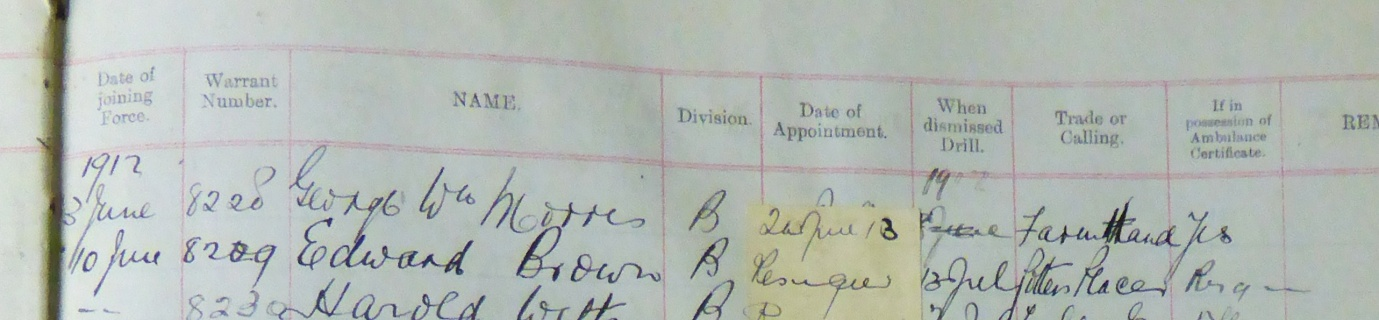 Date of joining Force. Warrant Number. NAME. Division. Date of Appointment. When dismissed Drill. Trade or Calling. If in possession of Ambulance Certificate. REM
1912 19
3 June 8228 George Wm Morris B 2nd June 13 June Farm Hand Yes
10 June 8229 Edward Brown B 13 Jul
Harold B